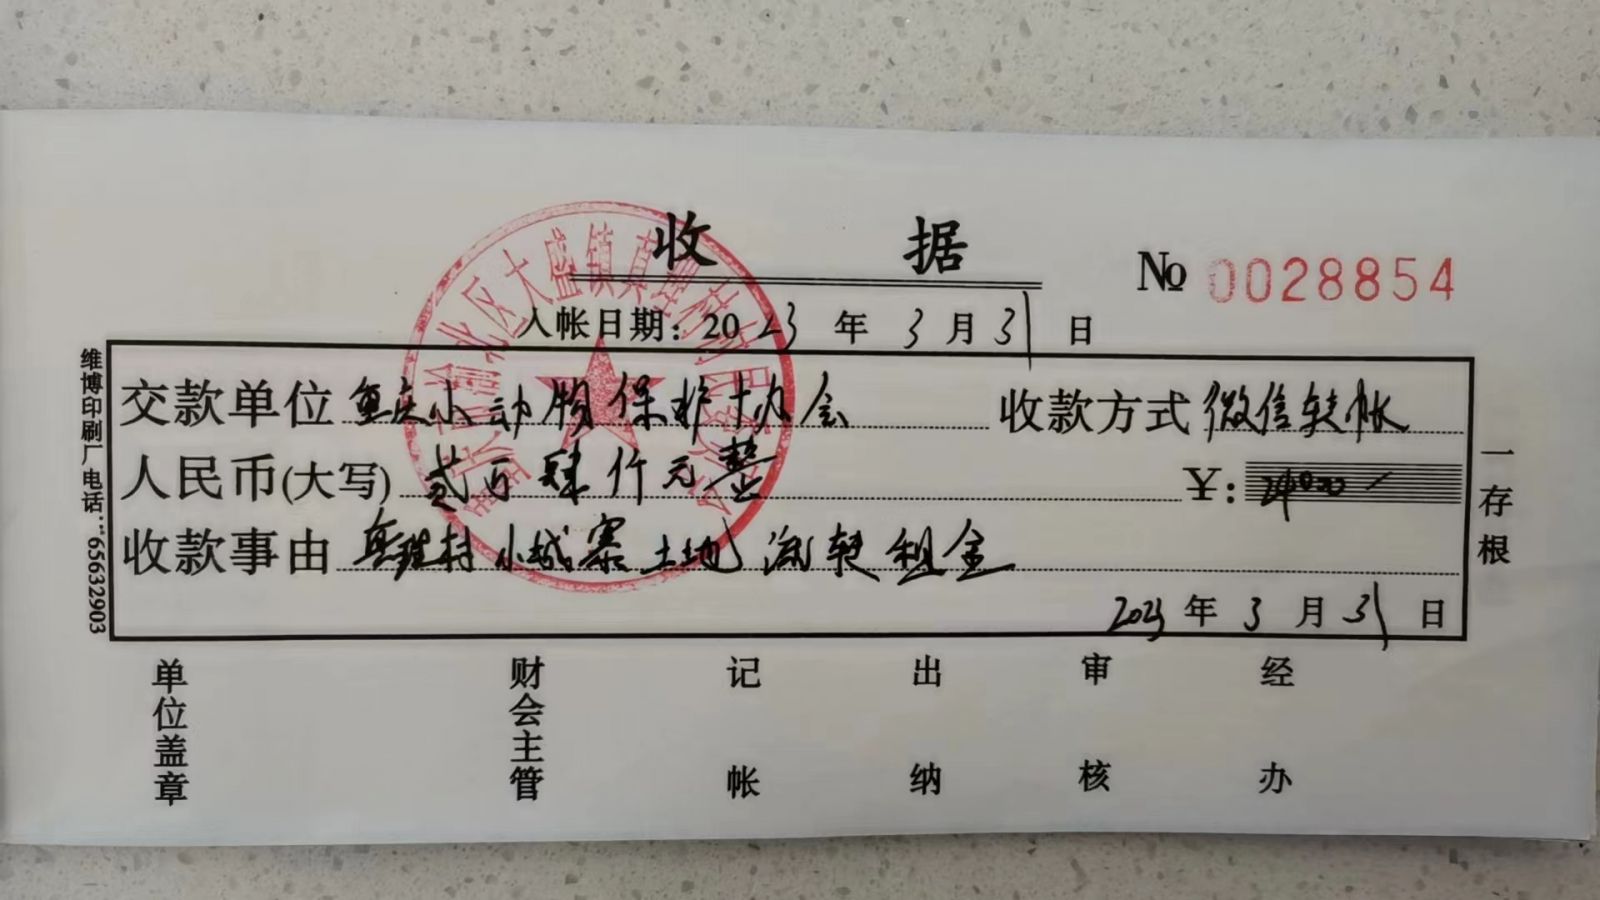 收据
No 0028854
入帐日期：2023年3月31日
交款单位 重庆小动物保护协会 收款方式 微信转帐
人民币(大写) 贰万肆仟元整 ￥: 24000
收款事由 真理村小城寨土地流转租金
2023年3月31日
单位盖章 财会主管 记帐 出纳 审核 经办
一存根
维博印刷厂 电话：65632903
渝北区大盛镇真理村